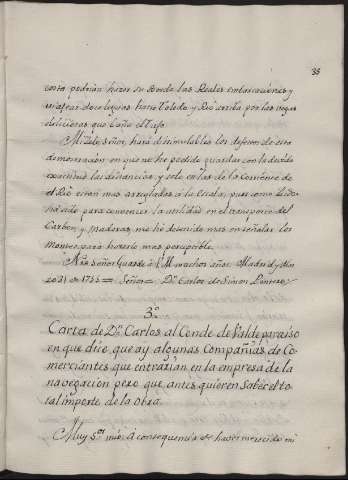 35
costa podrian hacer su Bordo las Reales embarcaciones y
navegar doce leguas hasta Toledo, y Rio arriba por las vegas
deliciosas que baña el Tajo.
Mi Rdo. Señor, hará disimulables los defectos de esta
demostracion en que no he podido guardar con la devida
exactitud las distancias, y solo en las de la Corriente de
el Rio están mas arregladas à la Escala, pues como
ha sido para convencer la utilidad en el transporte del
Carbon, y maderas, me he detenido mas en señalar los
Montes para hacerlo mas perceptible.
Ntro. Señor Guarde à V.M. muchos años. Madrid y
31 de 1755 = Señor = Dn. Carlos de Simon Pontero
3.º
Carta de Dn. Carlos al Conde de Valdeparaiso
en que dice, que ay algunas Compañias de Co-
merciantes que entrarian en la empresa de la
navegacion pero que antes quieren saber el to-
tal importe de la Obra.
Muy Sor. mio: à consequencia de haver merecido mi